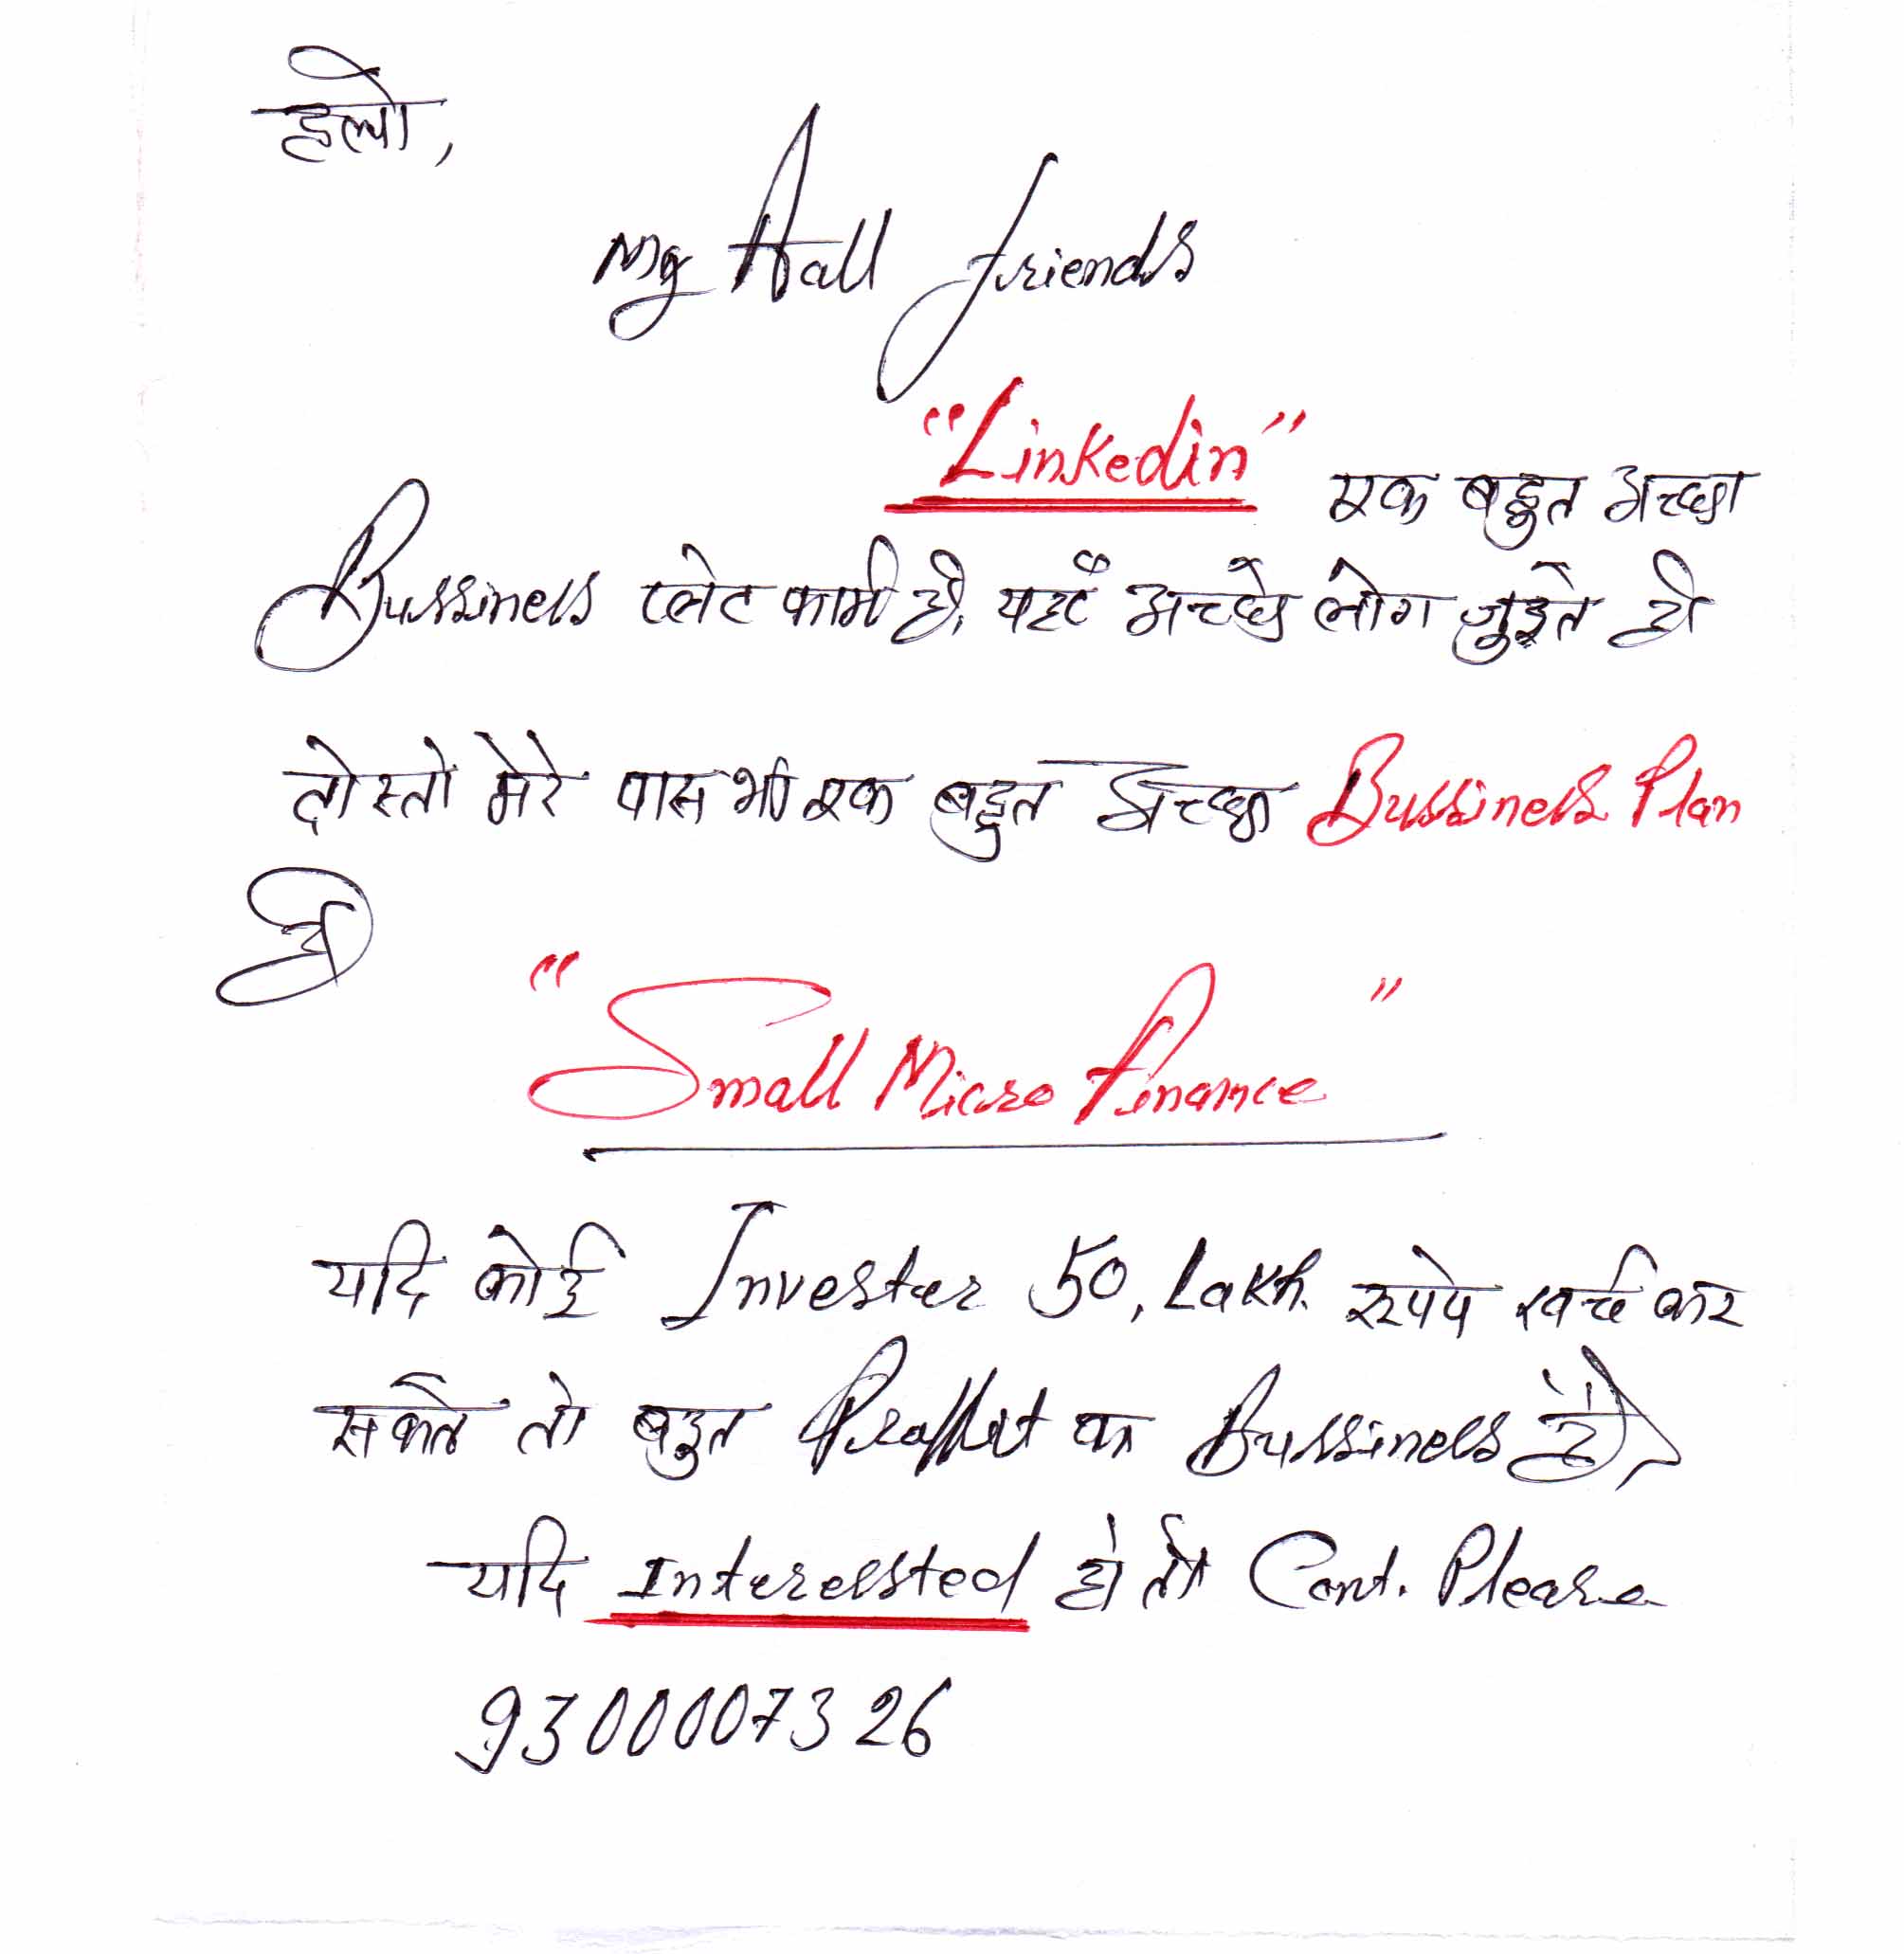 हल्लो,
My Aall friends
"Linkedin" एक बहुत अच्छा
Bussiness प्लेटफार्म है, यहाँ अच्छे लोग जुड़ते है
दोस्तो मेरे पास भी एक बहुत अच्छा Bussiness Plan
है
"Small Micro Finance"
यदि कोई Invester 50, Lakh. रूपये खर्च कर
सकते तो बहुत Proffit का Bussiness है,
यदि Interessted हो तो Cont. Please
9300007326